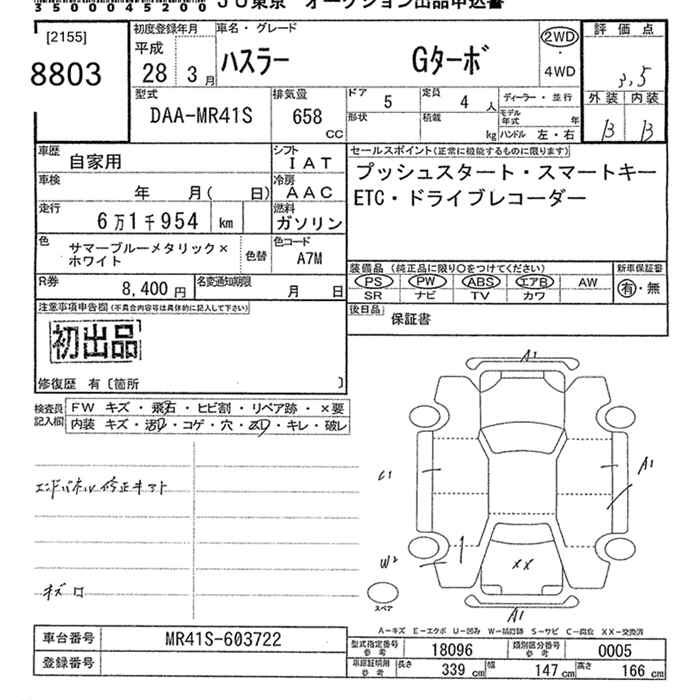 35000045200 JU東京 オークション出品申込書
[2155]
8803
初度登録年月
平成
28年3月
車名・グレード
ハスラー Gターボ
2WD
・
4WD
評価点
3.5
外装 内装
B B
型式
DAA-MR41S
排気量
658
CC
ドア
5
定員
4 人
形状
積載
kg
ディーラー・並行
モデル年式 年
ハンドル 左・右
車歴
自家用
シフト
IAT
車検
年 月( 日)
冷房
AAC
走行
6万1千954 km
燃料
ガソリン
色
サマーブルーメタリック×
ホワイト
色替
色コード
A7M
R券
8,400 円
名変通知期限
月 日
セールスポイント(正常に機能するものに限ります)
プッシュスタート・スマートキー
ETC・ドライブレコーダー
装備品(純正品に限り○をつけてください)
PS PW ABS エアB AW
SR ナビ TV カワ
新車保証書
有・無
後日品
保証書
注意事項申告欄(不具合内容等は具体的に記入して下さい)
初出品
修復歴 有〔箇所 〕
検査員
記入欄
FW キズ・飛石・ヒビ割・リペア跡・×要
内装 キズ・汚・コゲ・穴・・キレ・破レ
エンドパネル修正キズ
A1
A1
A1
W2
XX
スペア
A-キズ E-エクボ U-凹み W-補修跡 S-サビ C-腐食 XX-交換済
車台番号
MR41S-603722
登録番号
型式指定番号
参考
18096
類別区分番号
参考
0005
車庫証明用
参考
長さ 339 cm 幅 147 cm 高さ 166 cm